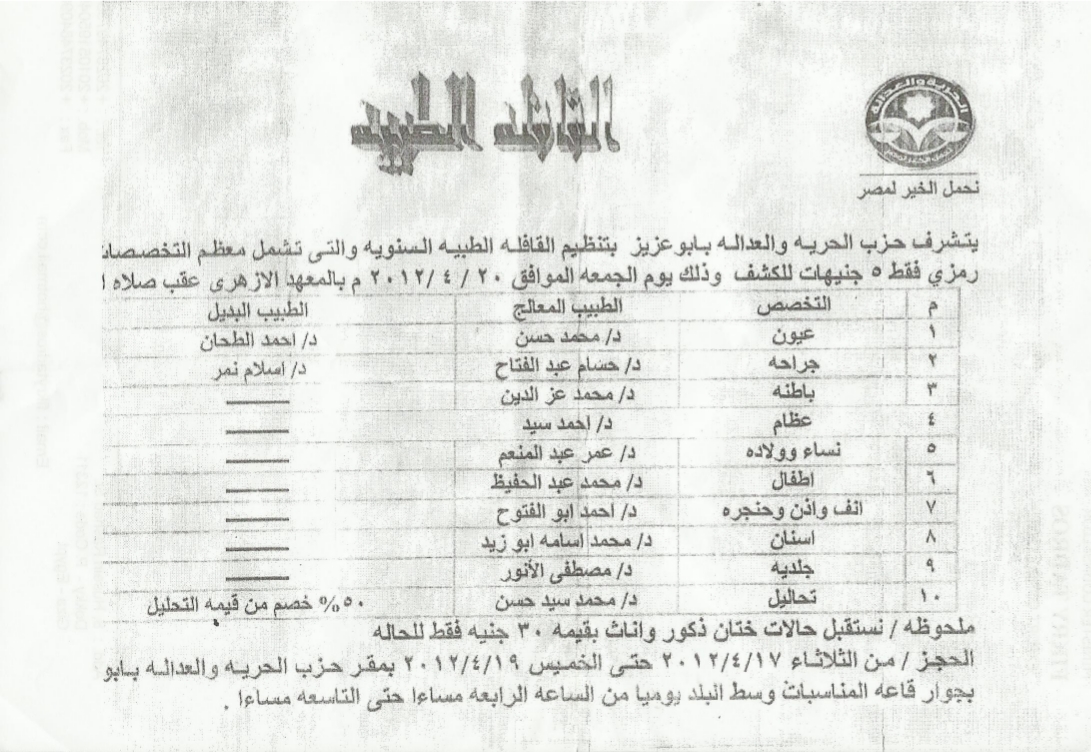 القافله الطبيه
الحرية والعدالة
نحمل الخير لمصر
يتشرف حزب الحريه والعداله بابوعزيز بتنظيم القافله الطبيه السنويه والتى تشمل معظم التخصصات
رمزي فقط ٥ جنيهات للكشف وذلك يوم الجمعه الموافق ٢٠ / ٤ /٢٠١٢ م بالمعهد الازهرى عقب صلاه
م التخصص الطبيب المعالج الطبيب البديل
١ عيون د/ محمد حسن د/ احمد الطحان
٢ جراحه د/ حسام عبد الفتاح د/ اسلام نمر
٣ باطنه د/ محمد عز الدين
٤ عظام د/ احمد سيد
٥ نساء وولاده د/ عمر عبد المنعم
٦ اطفال د/ محمد عبد الحفيظ
٧ انف واذن وحنجره د/ احمد ابو الفتوح
٨ اسنان د/ محمد اسامه ابو زيد
٩ جلديه د/ مصطفى الأنور
١٠ تحاليل د/ محمد سيد حسن ٥٠% خصم من قيمه التحليل
ملحوظه / نستقبل حالات ختان ذكور واناث بقيمه ٣٠ جنيه فقط للحاله
الحجز / من الثلاثاء ٢٠١٢/٤/١٧ حتى الخميس ٢٠١٢/٤/١٩ بمقر حزب الحريه والعداله بابو
بجوار قاعه المناسبات وسط البلد يوميا من الساعه الرابعه مساءا حتى التاسعه مساءا .